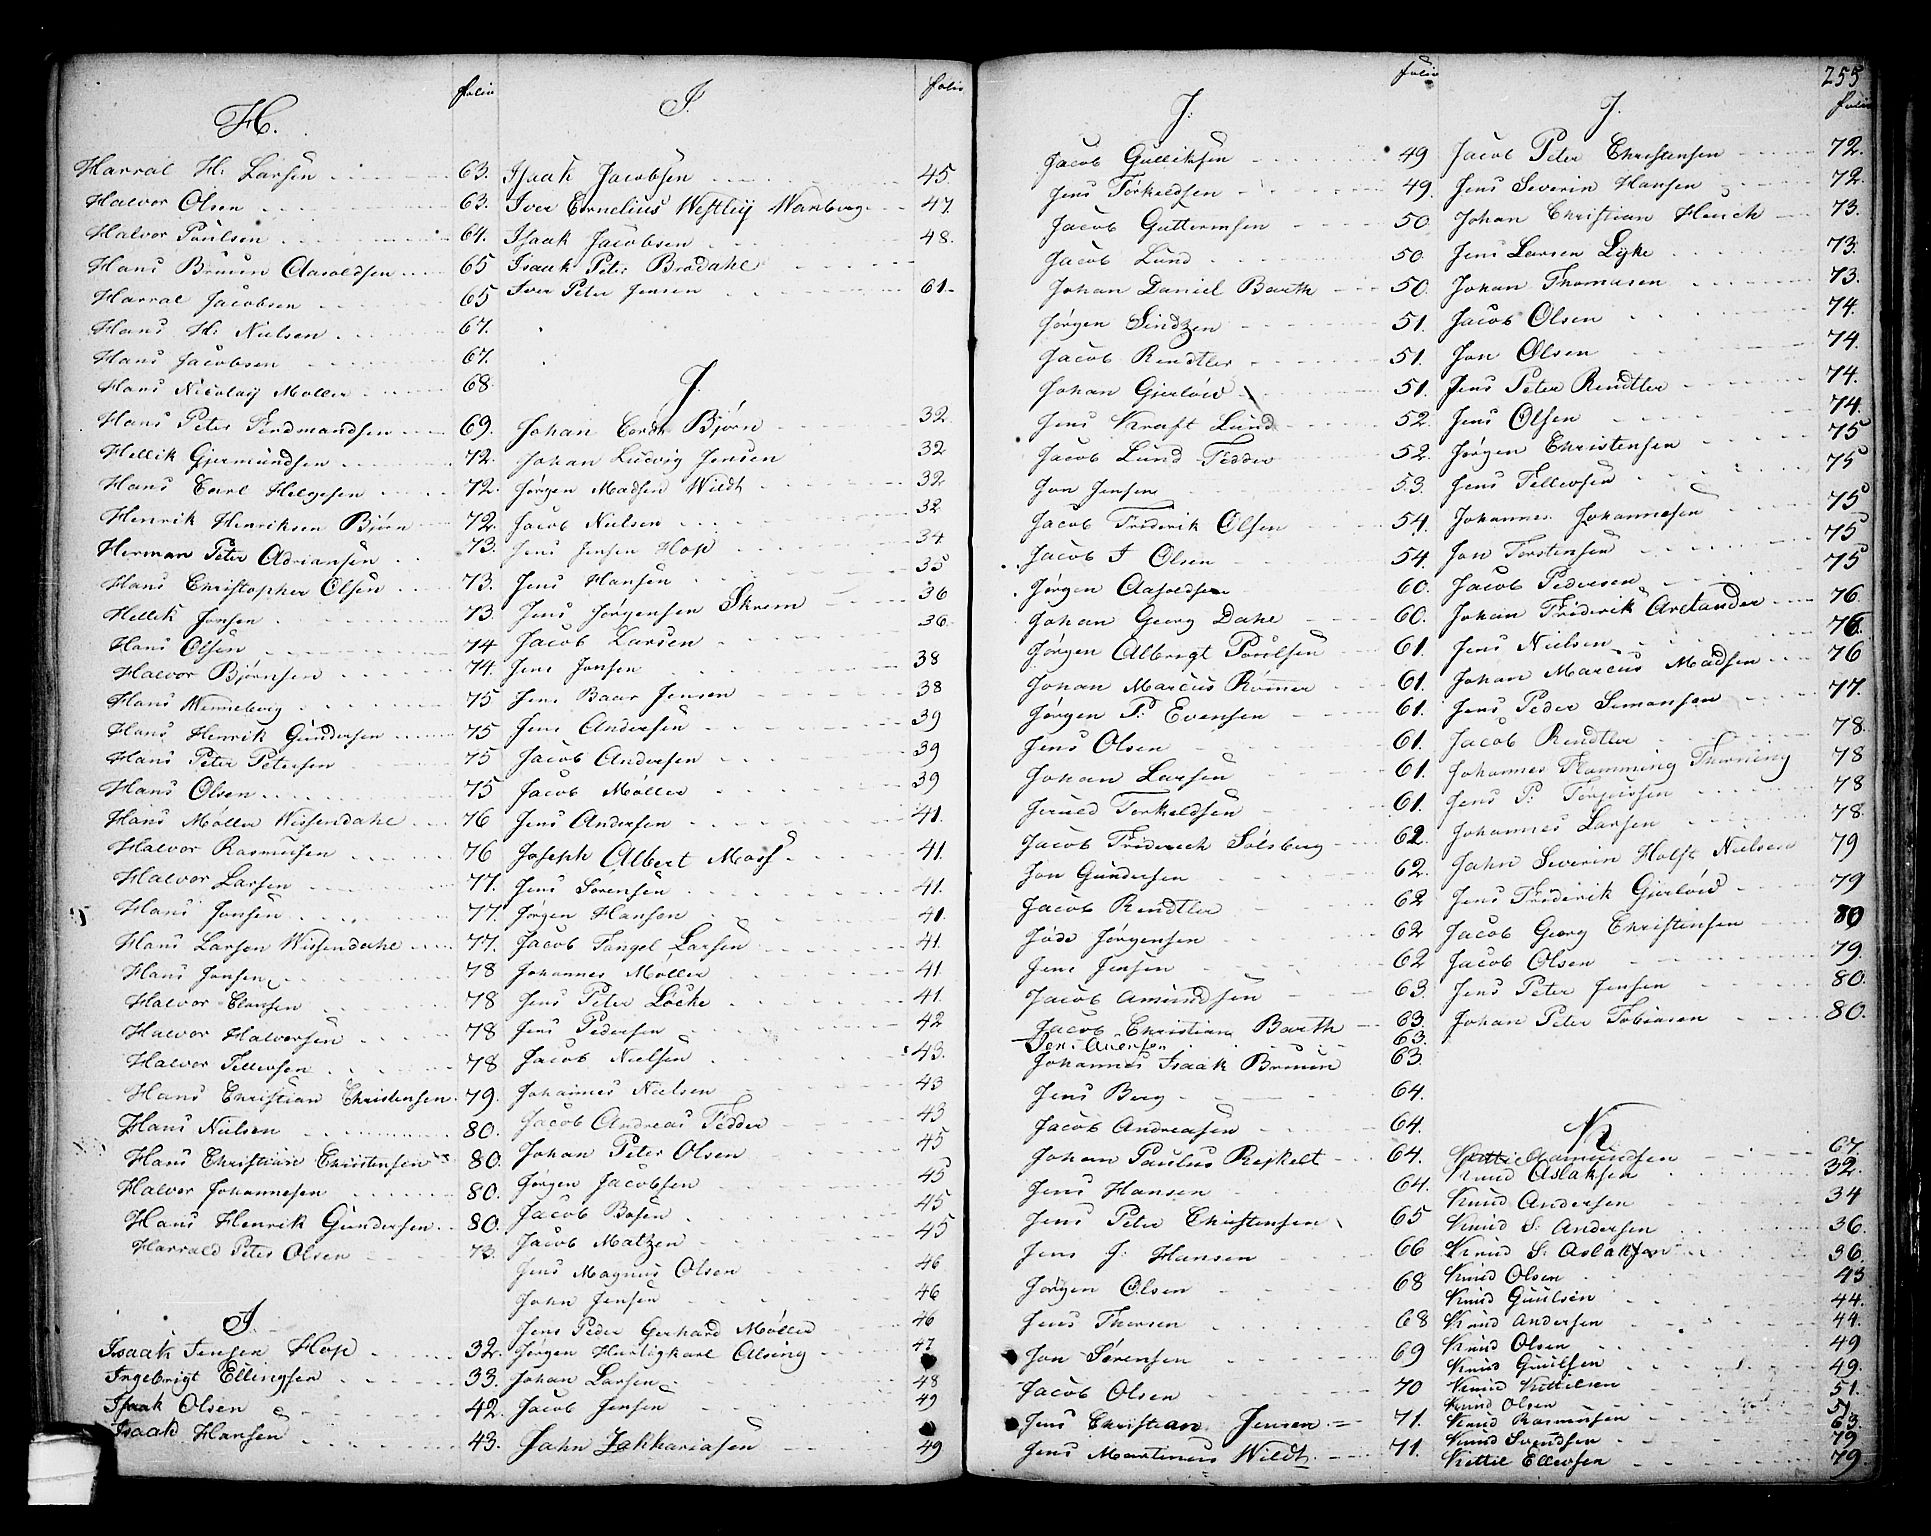 folio
H.
Harral H: Larsen 63.
Halvor Olsen 63.
Halvor Poulsen 64.
Hans Bruun Aasoldsen 65
Harral Jacobsen 65
Hans H: Nielsen 67.
Hans Jacobsen 67.
Hans Nicolaij Moller 68.
Hans Peter Ferdinandsen 69.
Hellik Gjermundsen 72.
Hans Carl Helgesen 72.
Henrik Henriksen Biørn 72.
Herman Peter Adriansen 73.
Hans Christopher Olsen 73.
Hellik Jonsen 73
Hans Olsen 74
Halvor Bjørnsen 74.
Hans Wenneberg 75
Hans Henrik Gundersen 75
Hans Peter Petersen 75
Hans Olsen 75
Hans Møller Wissendahl 76
Halvor Rasmusen 76
Halvor Larsen 77.
Hans Jonsen 77.
Hans Larsen Wissendahl 77.
Hans Jonsen 78
Halvor Clausen 78
Halvor Halvorsen 78
Halvor Tellevsen 78
Hans Christian Christensen 79.
Hans Nielsen 80.
Hans Christian Christensen 80.
Halvor Johannesen 80.
Hans Henrik Gundersen 80.
Harrald Peter Olsen 73.
I.
Isaak Jensen Hop 32.
Ingebrigt Ellingsen 33.
Isaak Olsen 42.
Isaak Hansen 43.
folio
I.
Isaak Jacobsen 45.
Iver Cornelius Westley Wanberg 47.
Isaak Jacobsen 48.
Isaak Peter Brodahl
Iver Peter Jensen 61.
J.
Johan Cordt Bjørn 32.
Johan Ludvig Jensen 32
Jørgen Madsen Wildt 32
Jacob Nielsen 32
Jens Jensen Hop 34
Jens Hansen 35
Jens Jørgensen Skrem 36
Jacob Larsen 36.
Jens Jonsen 38
Jens Baar Jensen 38
Jens Andersen 39
Jacob Andersen 39
Jacob Møller 39
Jens Andersen 41.
Joseph Albert Mosf 41.
Jens Sørensen 41.
Jørgen Hansen 41.
Jacob Tangel Larsen 41.
Johannes Møller 41.
Jens Peter Löcke 41.
Jens Pedersen 42
Jacob Nielsen 43.
Johannes Nielsen 43
Jacob Andreas Fedder 43
Johan Peter Olsen 45
Jørgen Jacobsen 45
Jacob Bosen 45
Jacob Matzen 45
Jens Magnus Olsen 46
John Jensen 46
Jens Peder Gerhard Møller 46
Jørgen Hertigkarl Alsing 47
Johan Larsen 48
Jacob Jensen 49
John Zakkariasen 49
folio
J:
Jacob Gulliksen 49
Jens Torkeldsen 49
Jacob Guttormsen 50
Jacob Lund 50
Johan Daniel Barth 50.
Jørgen Sindzen 51.
Jacob Rendtler 51.
Johan Gjerløw 51.
Jens Kraft Lund 52.
Jacob Lund Fedder 52.
Jon Jensen 53.
Jacob Friderik Olsen 54.
Jacob I Olsen 54.
Jørgen Aasoldsen 60.
Johan Georg Dahl 60.
Jørgen Albregt Poulsen 61.
Johan Marcus Rømer 61.
Jørgen P: Evensen 61.
Jens Olsen 61.
Johan Larsen 61.
Jeruld Torkeldsen 61.
Jacob Friderich Solsberg 62.
Jon Gundersen 62.
Jacob Rendtler 62
Jøde Jørgensen 62
Jens Jensen 62
Jacob Amundsen 63.
Jacob Christian Barth 63.
63.
Johannes Isaak Bruun 63.
Jens Berg 64.
Jacob Andreasen 64.
Johan Paulus Rejkelt 64.
Jens Hansen 64.
Jens Peter Christensen 65
Jens J: Hansen 66
Jørgen Olsen 68
Jens Thorsen 68
Jon Sørensen 69
Jacob Olsen 70
Jens Christian Jensen 71.
Jens Martinus Wildt 71.
255
folio
J.
Jacob Peter Christensen 72.
Jens Severin Hansen 72.
Johan Christian Heuch 73.
Jens Larsen Lyke 73.
Johan Thomasen 73.
Jacob Olsen 74.
Jon Olsen 74.
Jens Peter Rendtler 74.
Jens Olsen 74.
Jørgen Christensen 75
Jens Tellevsen 75
Johannes Johannesen 75
Jon Torstensen 75
Jacob Pedersen 75
Johan Friderik Arctander 76.
Jens Nielsen 76.
Johan Marcus Madsen 76
Jens Peder Simonsen 77.
Jacob Rendtler 78.
Johannes Flamming Thorning 78
Jens P: Torgersen 78
Johannes Larsen 78.
John Severin Holst Nielsen 79
Jens Friderik Gjerløw 79
Jacob Georg Christensen 80
Jacob Olsen 79.
Jens Peter Jensen 80.
Johan Peter Tobiasen 80.
K
Kittil Aamundsen 67.
Knud Aslaksen 32.
Knud Andersen 34
Knud S: Andersen 36.
Knud S: Aslaksen 36.
Knud Olsen 43
Knud Guulsen 44.
Knud Andersen 44.
Knud Olsen 49
Knud Guulsen 49.
Knud Kittilsen 51.
Knud Olsen 51
Knud Rasmusen 63.
Knud Svendsen 79
Kittil Ellevsen 79.